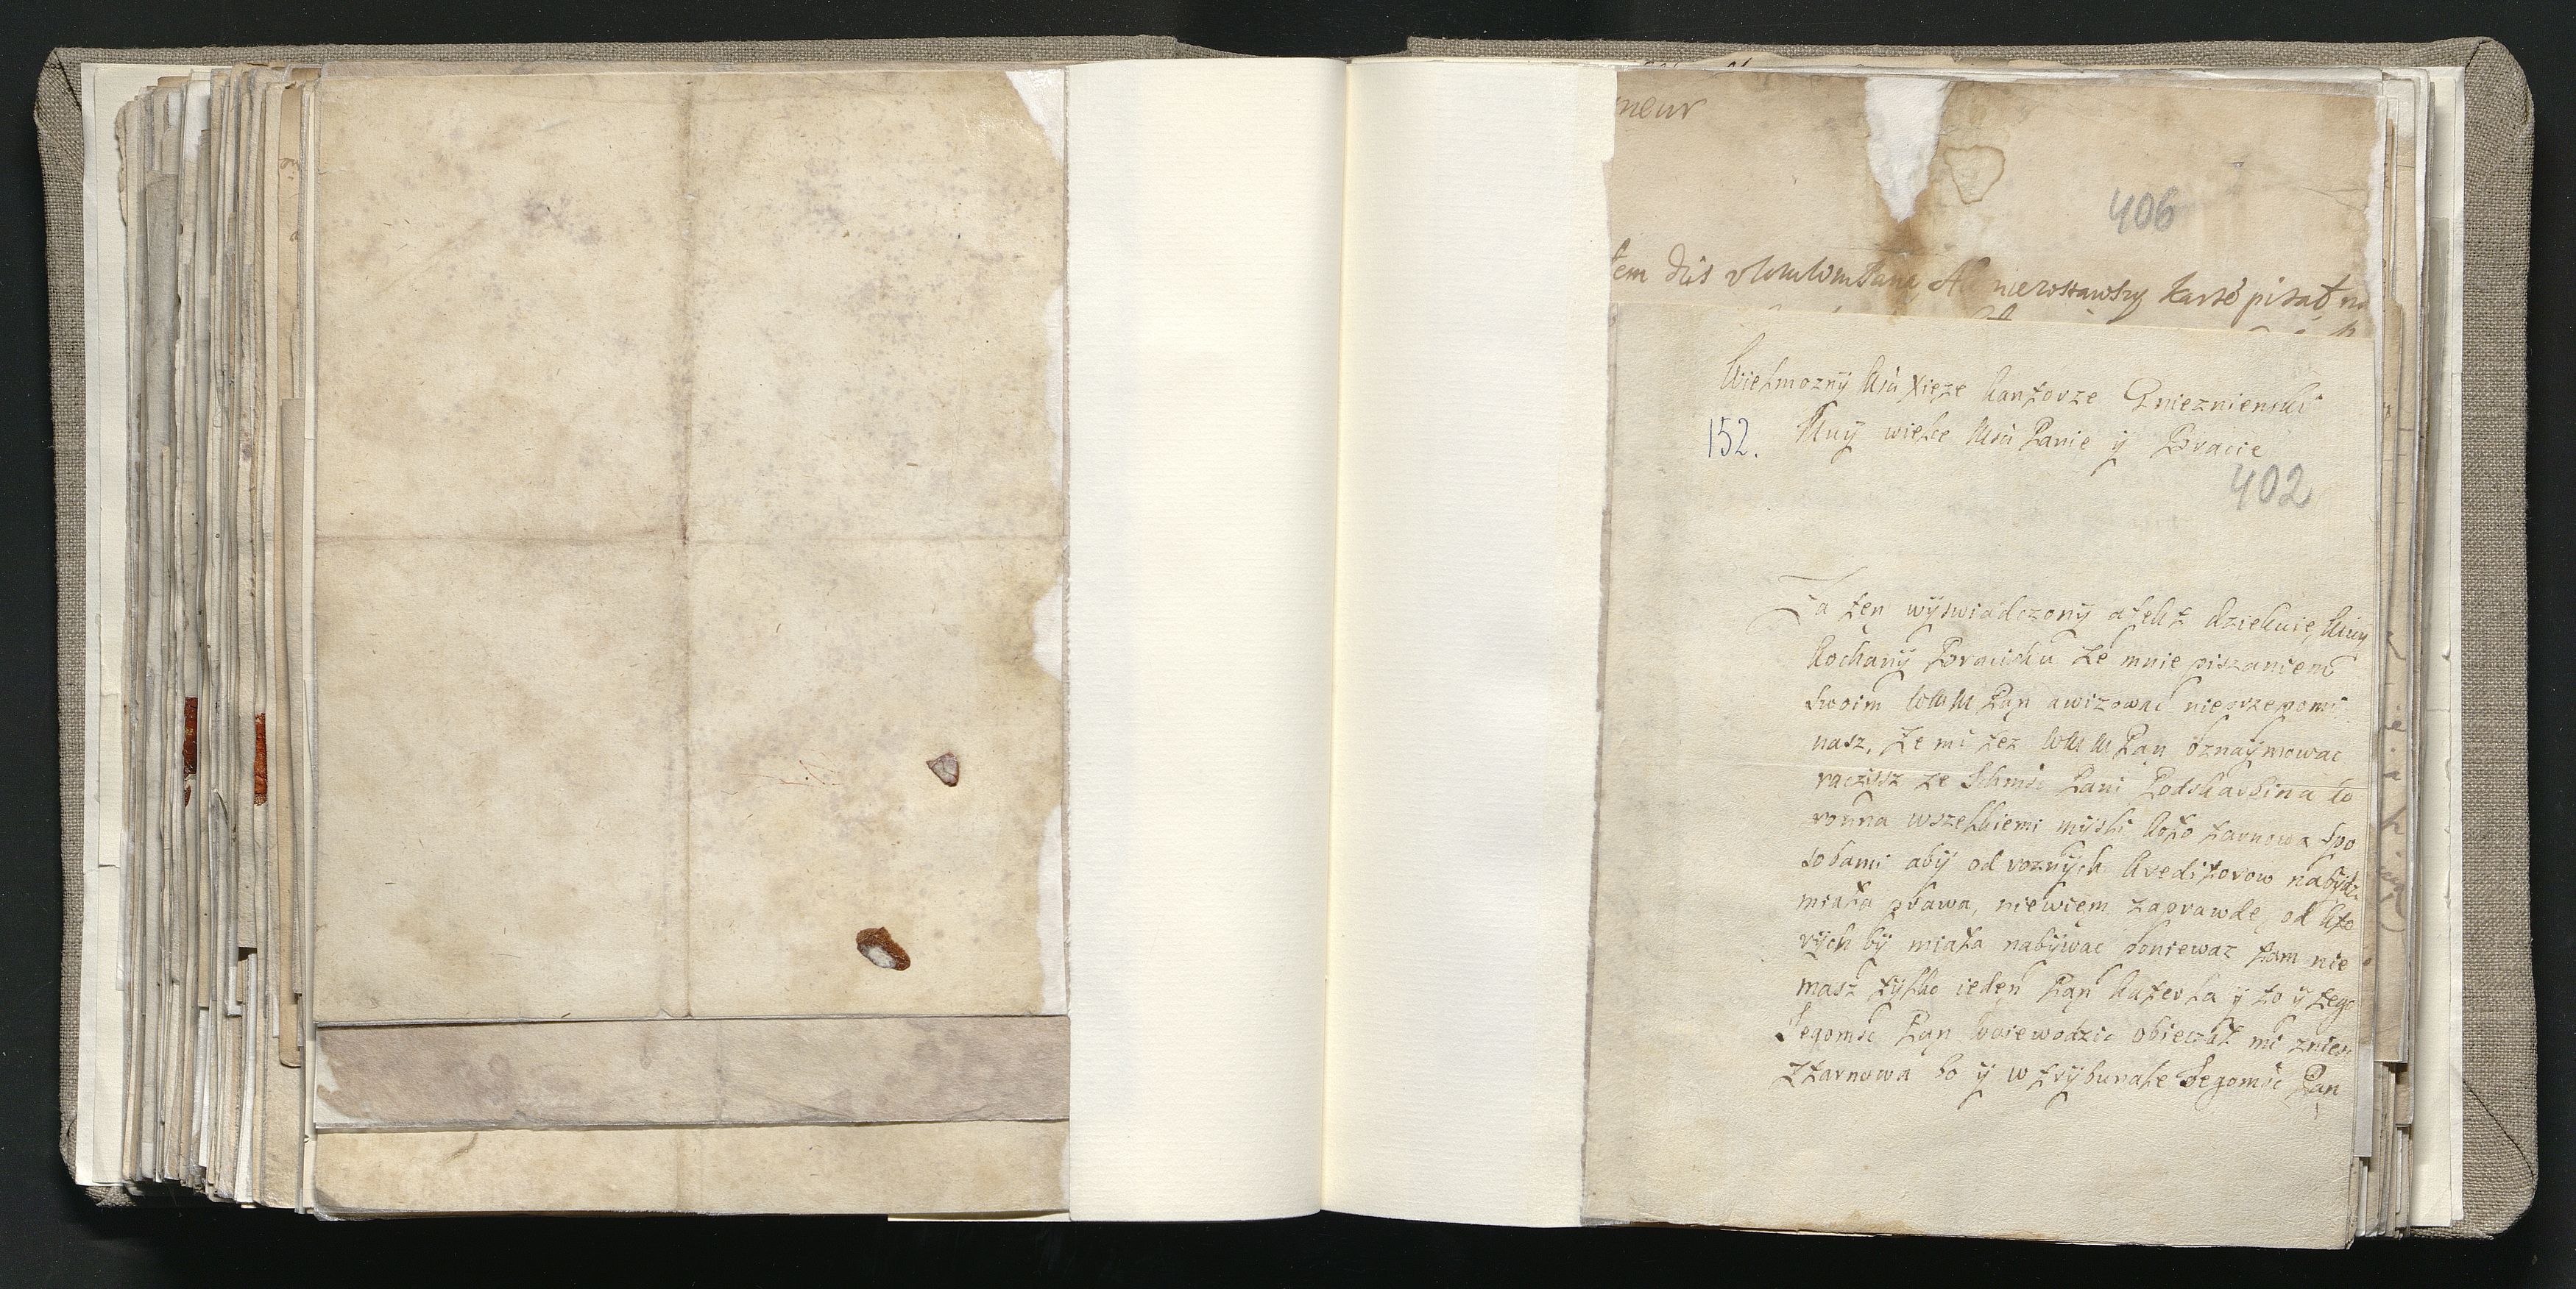 neur
406
tem dis
nierostawszy kartę pisał na
Wielmozny Msci Xięze Kantorze Gnieznienski
152. Muy wielce Msci Panie ÿ Bracie
402
Za ten wÿswiadczonÿ afekt dziekuie, Muy
kochanÿ Braciszku ze mnie piszaniem
swoim WMM Pan awizowac nieprzepomi
nasz, ze mi tez WMM Pan oznaÿmowac
raczisz ze Jeÿmsc Pani Podskarbina ko
ronna wszelkiemi mÿsli koło tarnowa spo
sobami abÿ od roznÿch kreditorow nabÿdz
miała prawa, niewiem zaprawde, od kto
rÿch bÿ miała nabÿwac poniewaz tam nie
masz tÿlko ieden Pan Kuterla ÿ to ÿ tego
Jegomsc Pan Woiewodzic obieczał mi zniesc
z tarnowa bo ÿ w trÿbunale Jegomsc Pan